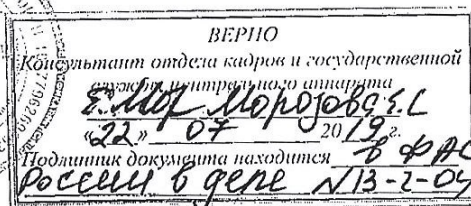 ВЕРНО
Консультант отдела кадров и государственной
службы центрального аппарата
Е.Мор Морозова Е.С
«22» 07 2019 г.
Подлинник документа находится в ФАС
России в деле N13-2-04